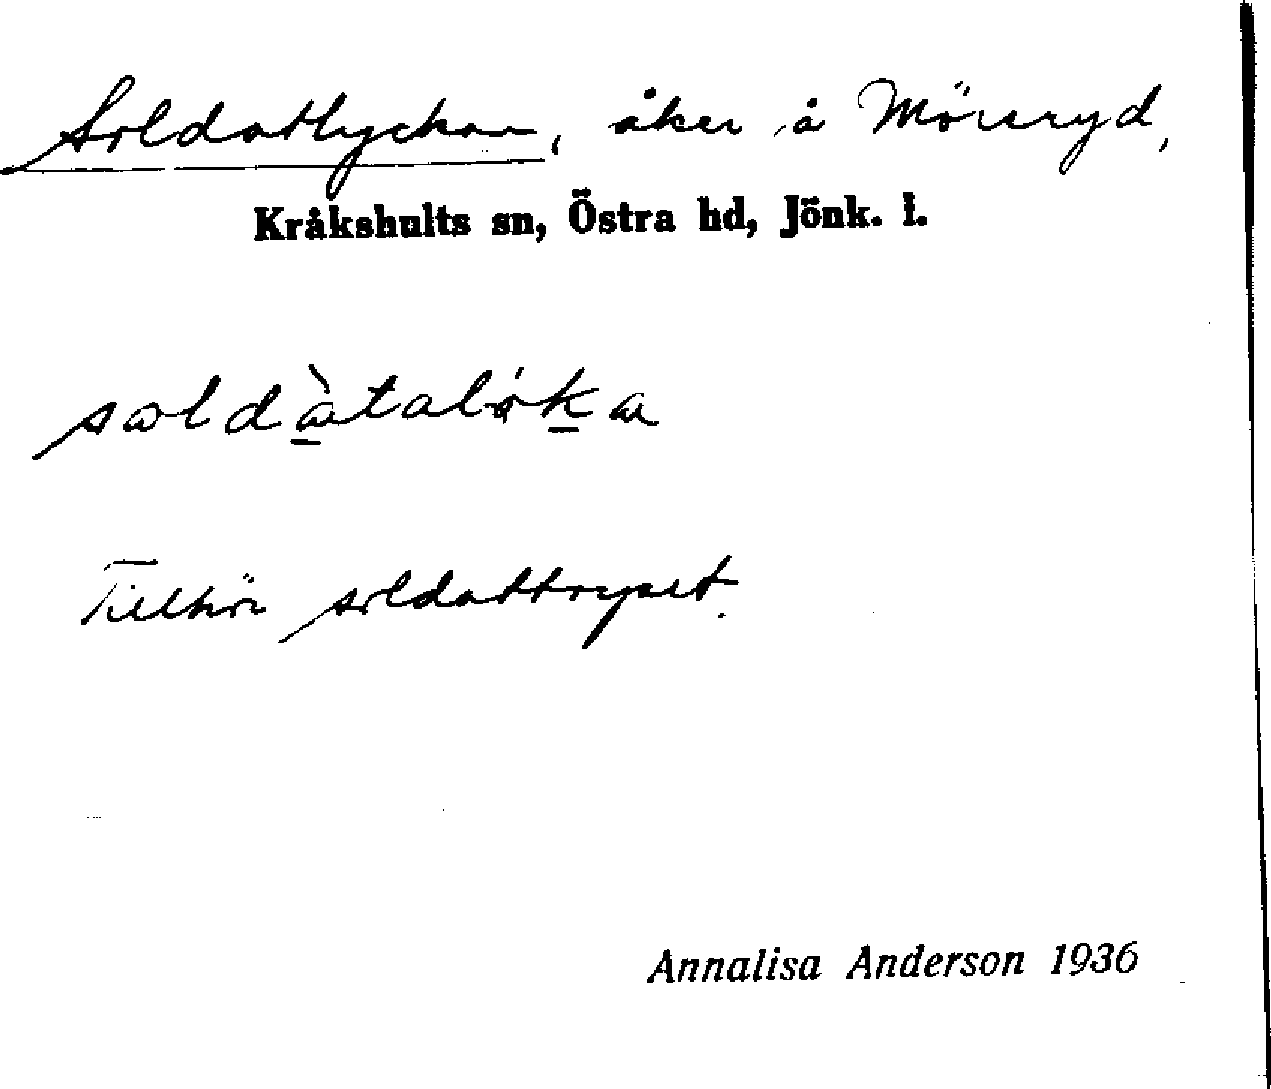 Soldatlyckan, åker å Mörsryd,
Kråkshults sn, Östra hd, Jönk. l.
soldàtalóka
Tillhör soldattorpet.
Annalisa Anderson 1936